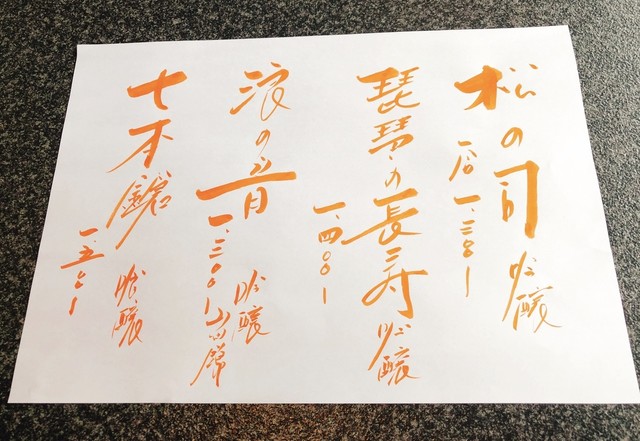 松の司 吟醸
一合 一、三〇〇ー
琵琶の長寿 吟醸
一、四〇〇ー
浪の音 吟醸
一、三〇〇ー 山田錦
七本鎗 吟醸
一、五〇〇ー